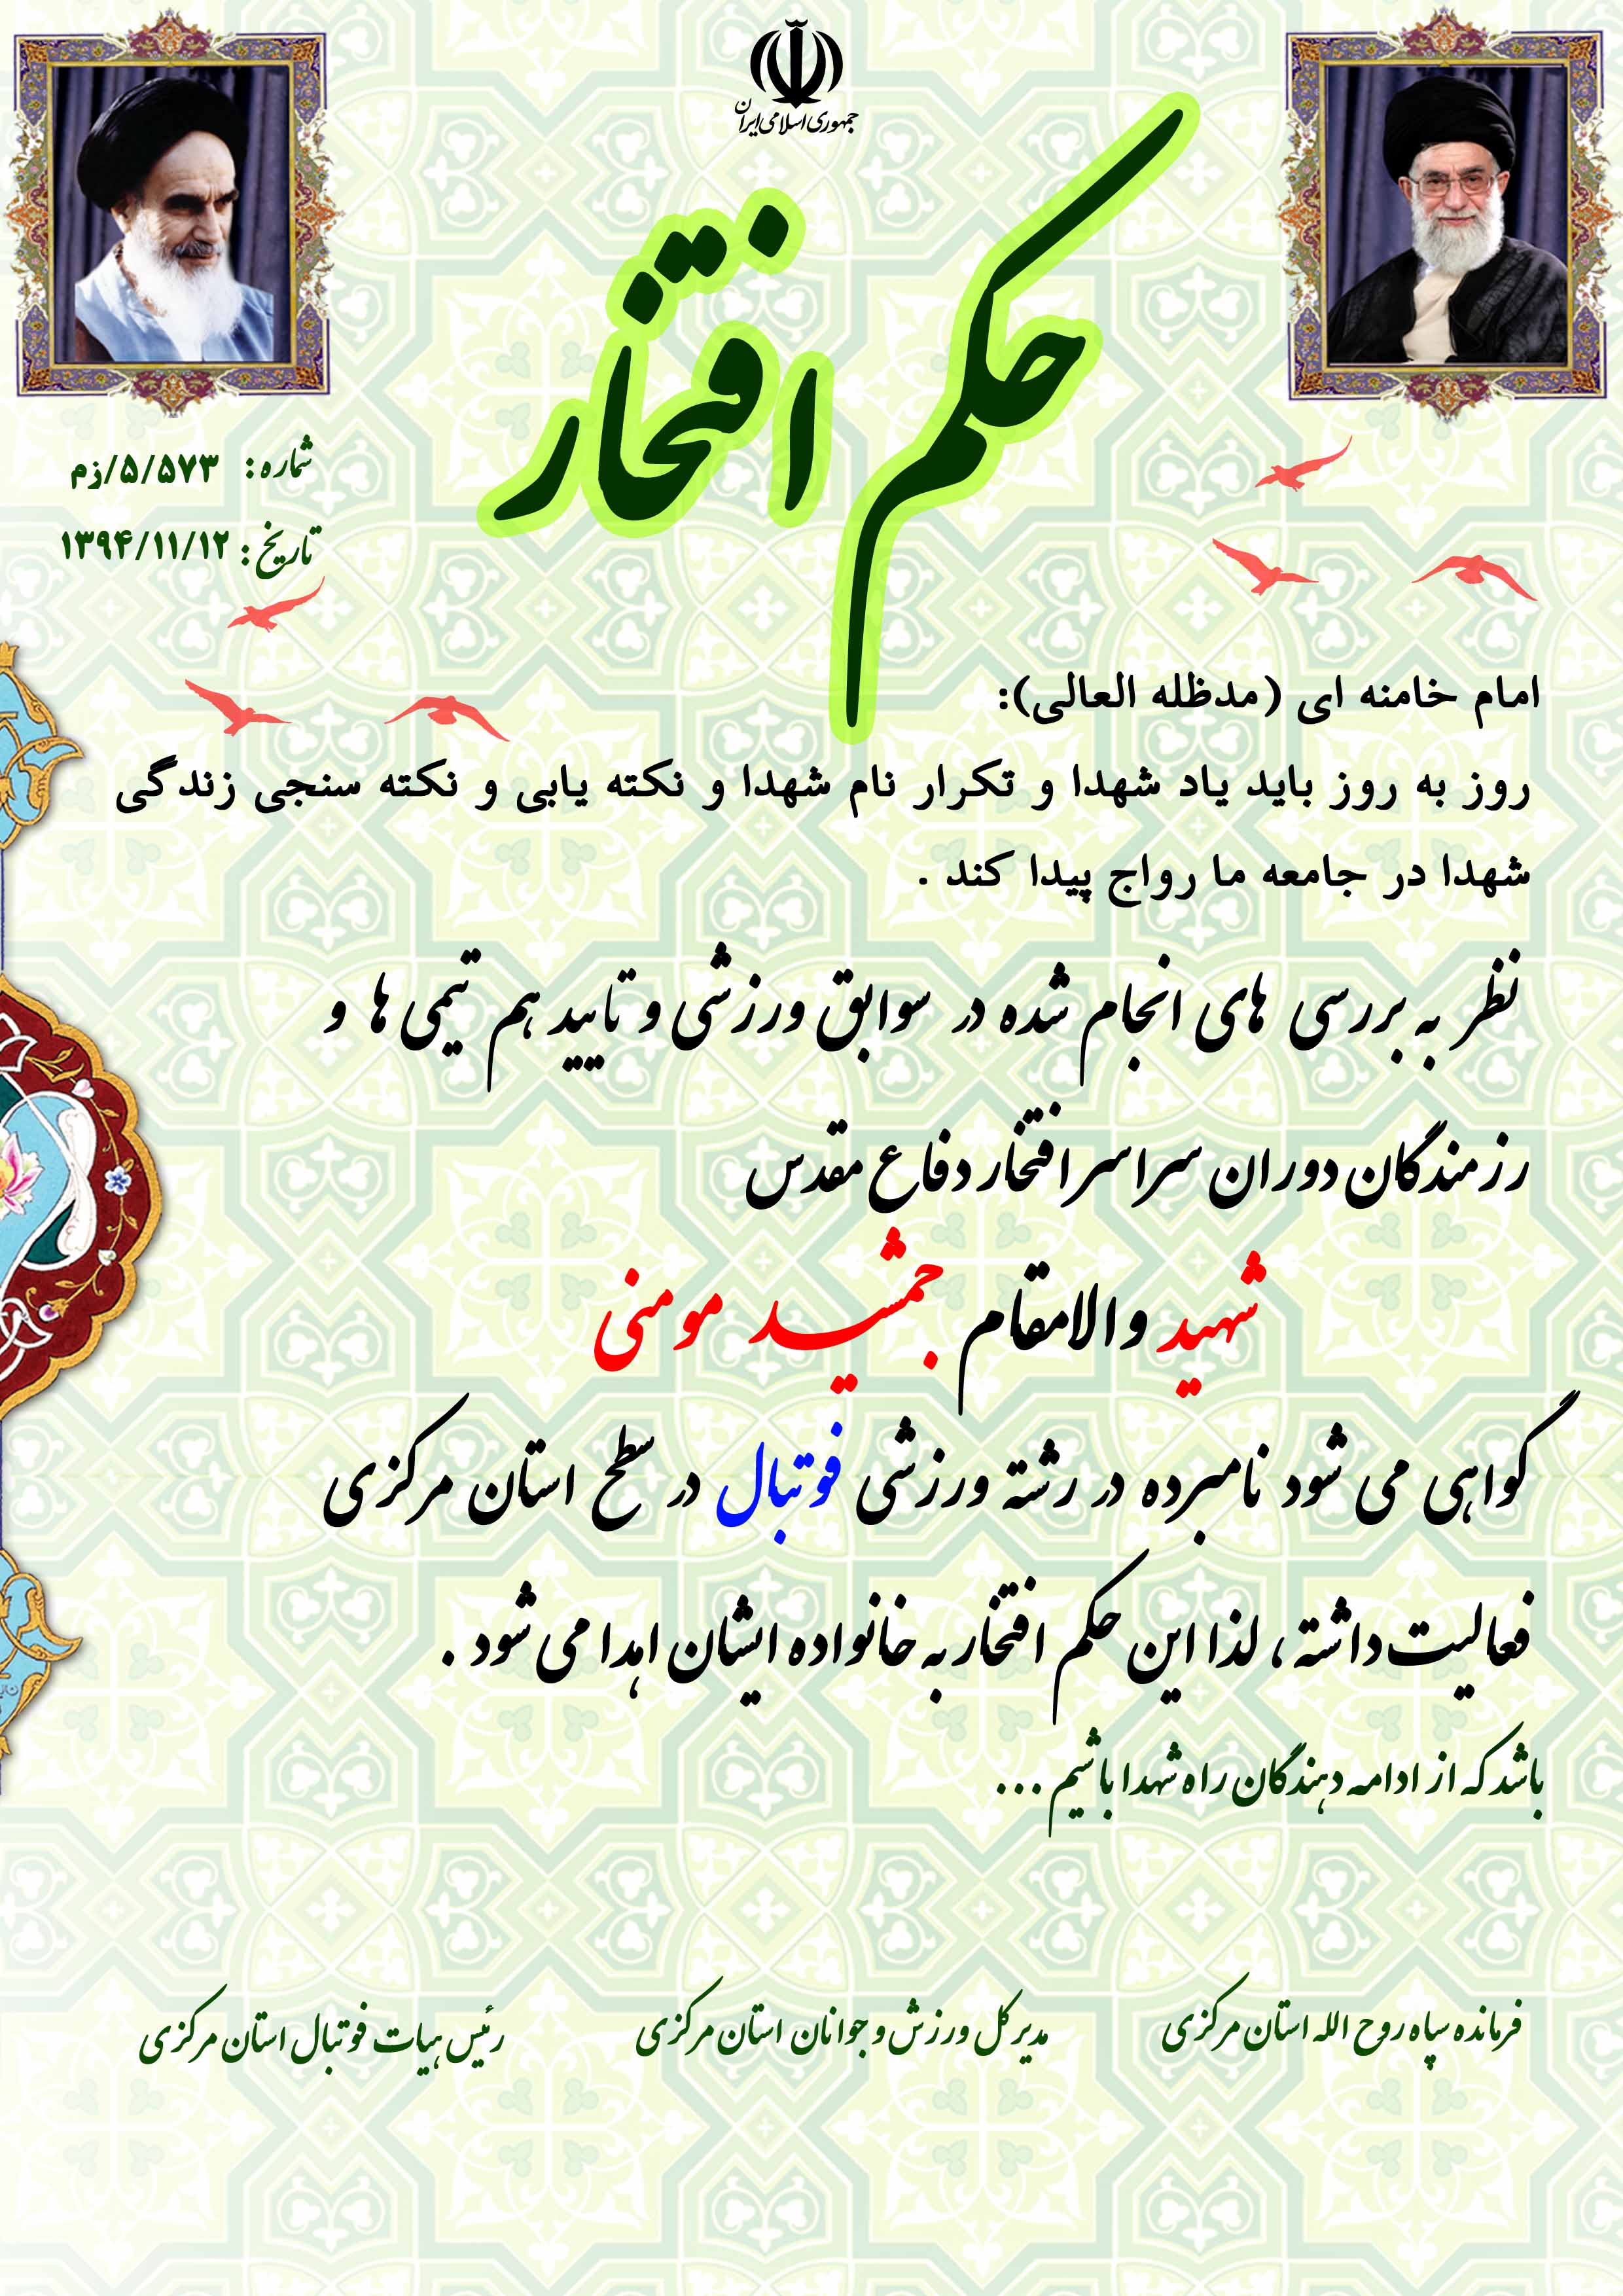 جمهوری اسلامی ایران
حکم افتخار
شماره: ۵/۵۷۳/زم
تاریخ: ۱۳۹۴/۱۱/۱۲
امام خامنه ای (مدظله العالی):
روز به روز باید یاد شهدا و تکرار نام شهدا و نکته یابی و نکته سنجی زندگی
شهدا در جامعه ما رواج پیدا کند .
نظر به بررسی های انجام شده در سوابق ورزشی و تایید هم تیمی ها و
رزمندگان دوران سراسر افتخار دفاع مقدس
شهید والامقام جمشید مومنی
گواهی می شود نامبرده در رشته ورزشی فوتبال در سطح استان مرکزی
فعالیت داشته، لذا این حکم افتخار به خانواده ایشان اهدا می شود .
باشد که از ادامه دهندگان راه شهدا باشیم ...
فرمانده سپاه روح الله استان مرکزی
مدیر کل ورزش و جوانان استان مرکزی
رئیس هیات فوتبال استان مرکزی